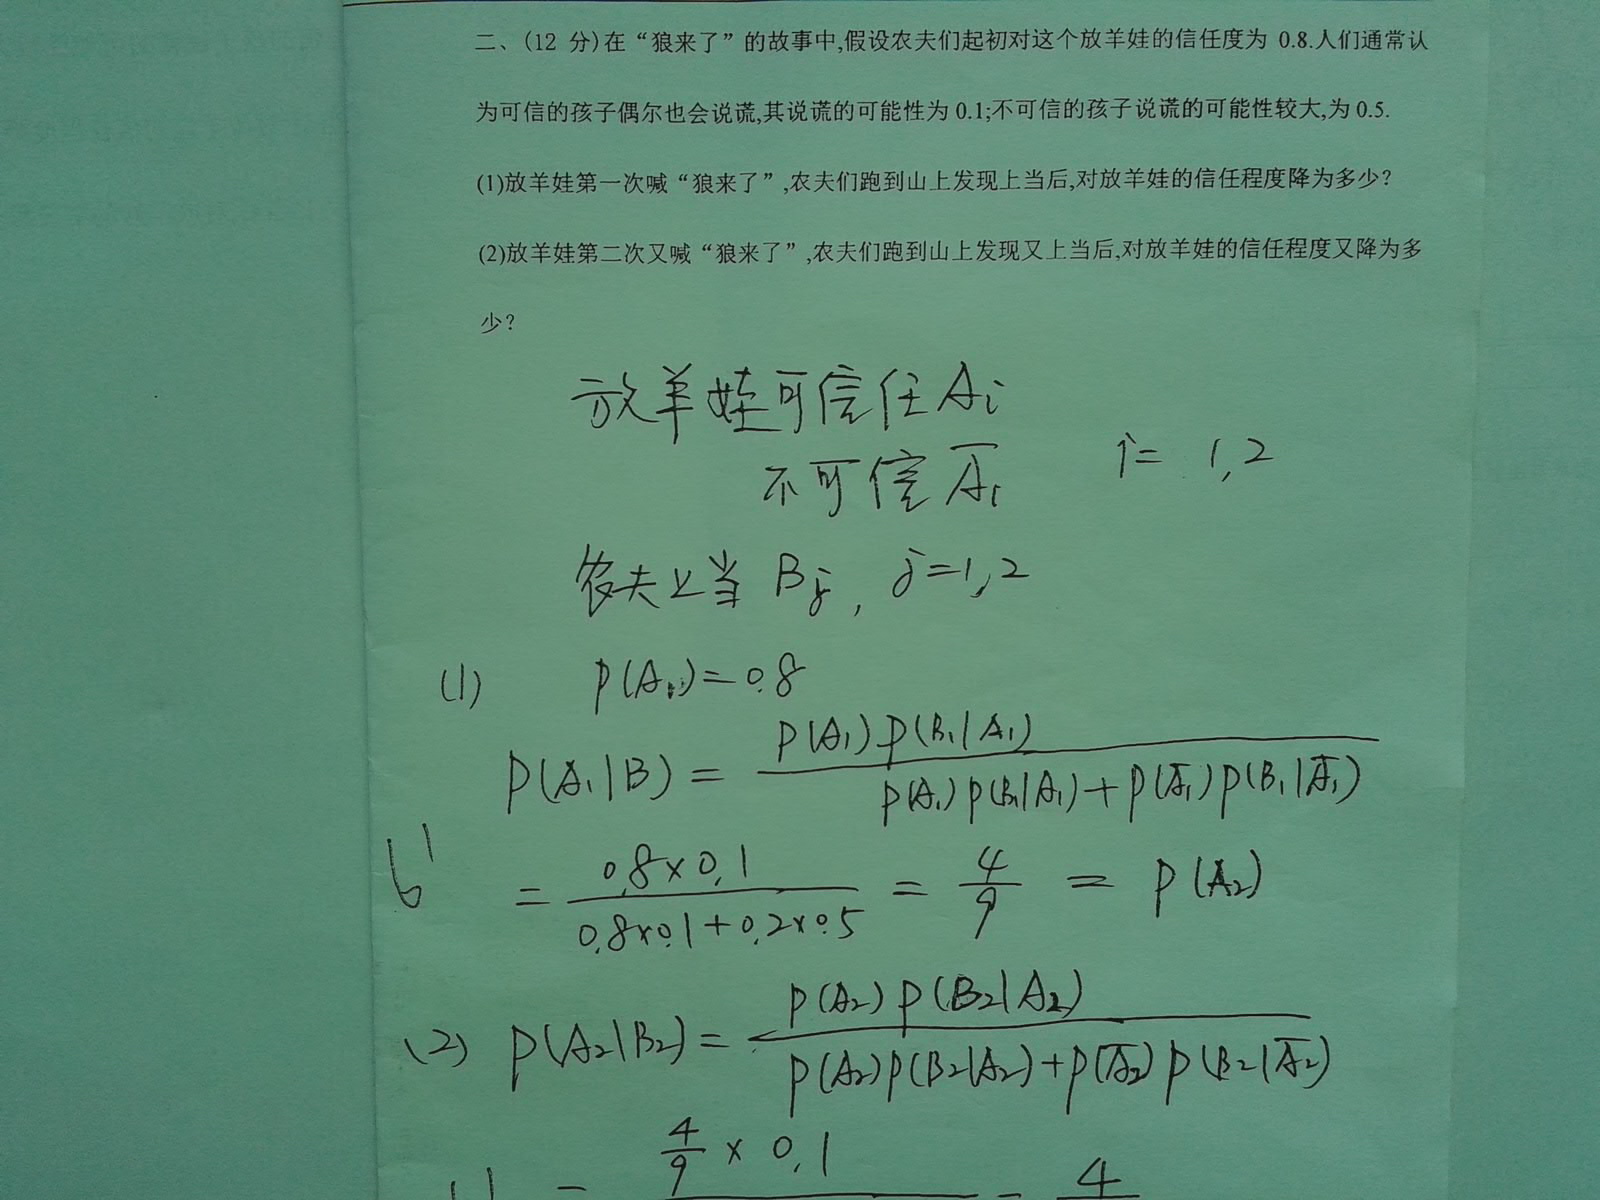 二、(12 分)在“狼来了”的故事中,假设农夫们起初对这个放羊娃的信任度为 0.8.人们通常认
为可信的孩子偶尔也会说谎,其说谎的可能性为 0.1;不可信的孩子说谎的可能性较大,为 0.5.
(1)放羊娃第一次喊“狼来了”,农夫们跑到山上发现上当后,对放羊娃的信任程度降为多少?
(2)放羊娃第二次又喊“狼来了”,农夫们跑到山上发现又上当后,对放羊娃的信任程度又降为多
少?
放羊娃可信任 Ai
不可信 A̅i i= 1,2
农夫上当 Bj, j=1,2
(1) P(A1)=0.8
P(A1|B) = P(A1)P(B1|A1)
P(A1)P(B1|A1)+P(A̅1)P(B1|A̅1)
6'
= 0.8×0.1 = 4 = P(A2)
0.8×0.1+0.2×0.5 9
(2) P(A2|B2)= P(A2)P(B2|A2)
P(A2)P(B2|A2)+P(A̅2)P(B2|A̅2)
= 4/9 × 0.1 = 4